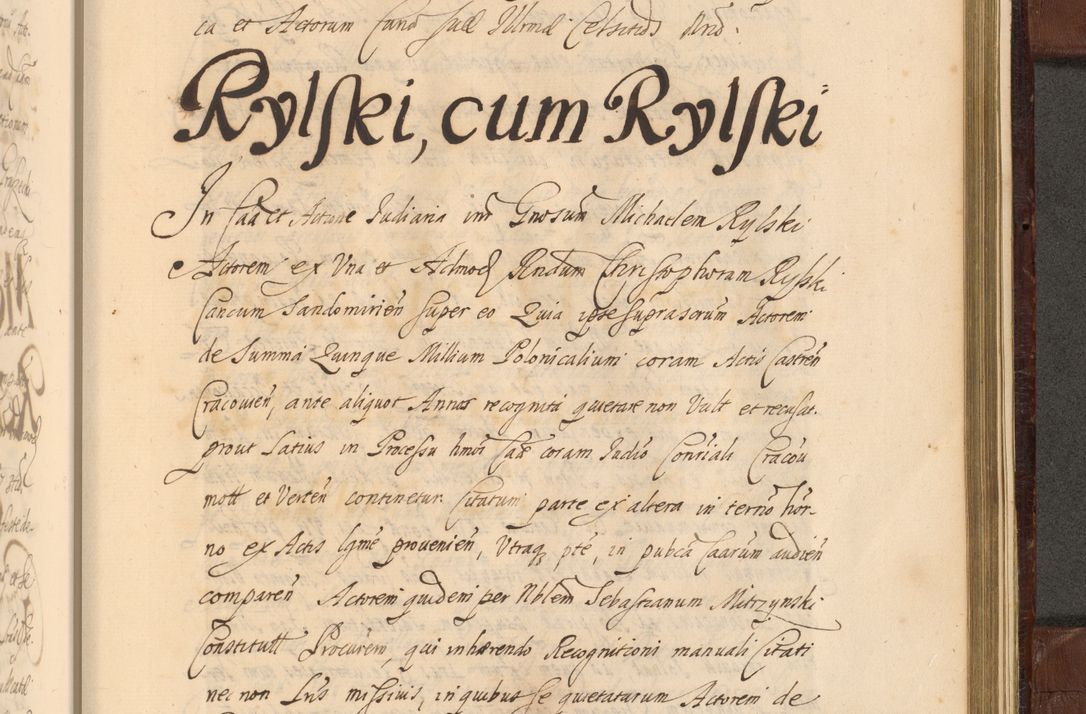 ca et Actorum Cauſ suae Illrmae Celsitudis Vrae
Rylſki, cum Rylſki
In Cauſa et Actione Iudiaria inr Gnosum Michaelem Rylski
Actorem ex Vna et Admod Rndum Chriſtophorum Rylski
Cancum Sandomirien̄ ſuper eo Quia ipse ſuprascrum Actorem
de Summa Quinque Millium Polonicalium coram Actis Castren̄
Cracovien̄, ante aliquot Annos recogniti quietare non Vult et recusat
prout Latius in Proceſsu hmoi Cauſ coram Iudio Conſriali Cracou
mott et Verten̄ continetur Citatum parte ex altera in termo hor-
no ex Actis lgme provenien̄, Vtraq pte, in pubca Cauſarum audien̄
comparen̄ Actorem quidem per Nblem Sebaſtianum Mitrzynski
Constitutt Procurem, qui inhærendo Recognitioni manuali Citati
nec non Lris miſsivis, in quibus ſe quietaturum Actorem de